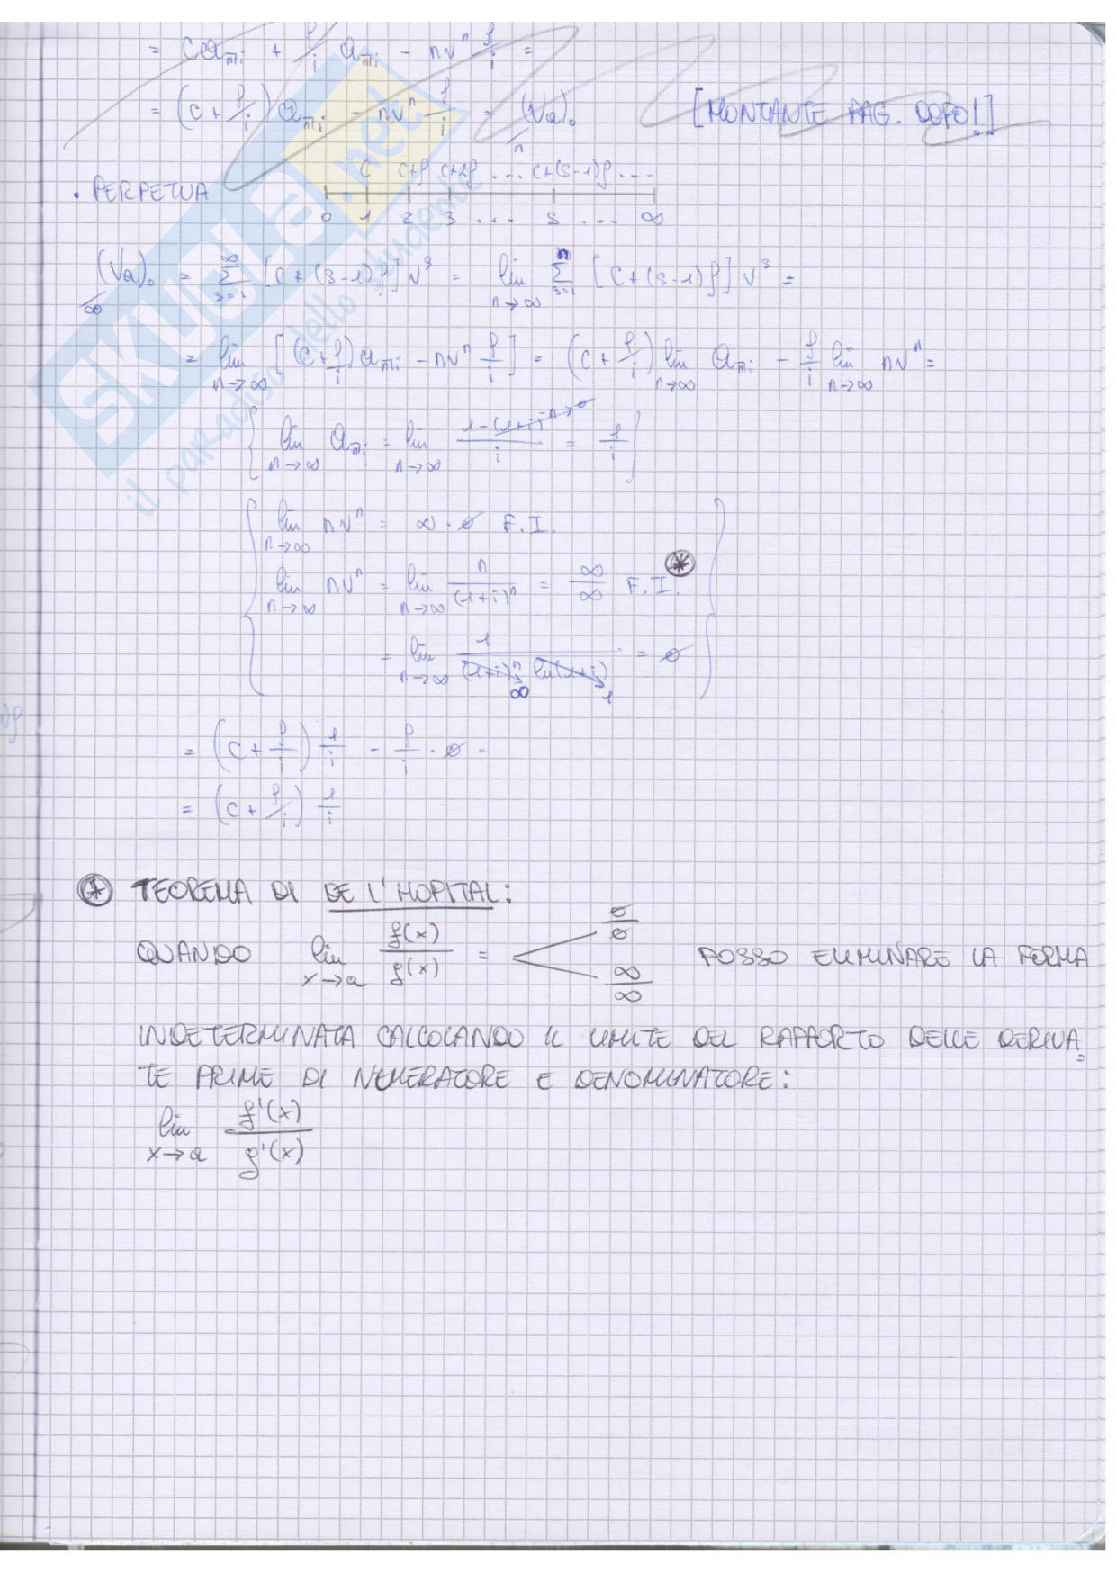 = C a_n̄|i + ρ/i a_n̄|i - n vⁿ ρ/i =
= (C + ρ/i) a_n̄|i - n vⁿ ρ/i = n(Va)₀ [MONTANTE PAG. DOPO!]
C C+ρ C+2ρ ... C+(s-1)ρ ...
• PERPETUA
0 1 2 3 ... s ... ∞
∞(Va)₀ = Σ_{s=1}^{∞} [C + (s-1)ρ] v^s = lim_{n→∞} Σ_{s=1}^{n} [C + (s-1)ρ] v^s =
= lim_{n→∞} [(C + ρ/i) a_n̄|i - n vⁿ ρ/i] = (C + ρ/i) lim_{n→∞} a_n̄|i - ρ/i lim_{n→∞} n vⁿ =
{ lim_{n→∞} a_n̄|i = lim_{n→∞} (1 - (1+i)^{-n} → 0)/i = 1/i }
{ lim_{n→∞} n vⁿ = ∞ · 0 F.I.
lim_{n→∞} n vⁿ = lim_{n→∞} n/(1+i)ⁿ = ∞/∞ F.I. ⊛
= lim_{n→∞} 1/((1+i)ⁿ ln(1+i)) = 0 }
∞
= (C + ρ/i) 1/i - ρ/i · 0 =
= (C + ρ/i) 1/i
⊛ TEOREMA DI DE L'HOPITAL:
QUANDO lim_{x→a} f(x)/g(x) = < 0/0 ∞/∞ POSSO ELIMINARE LA FORMA
INDETERMINATA CALCOLANDO IL LIMITE DEL RAPPORTO DELLE DERIVA=
TE PRIME DI NUMERATORE E DENOMINATORE:
lim_{x→a} f'(x)/g'(x)
SKUOLA.net
il paradiso dello studente